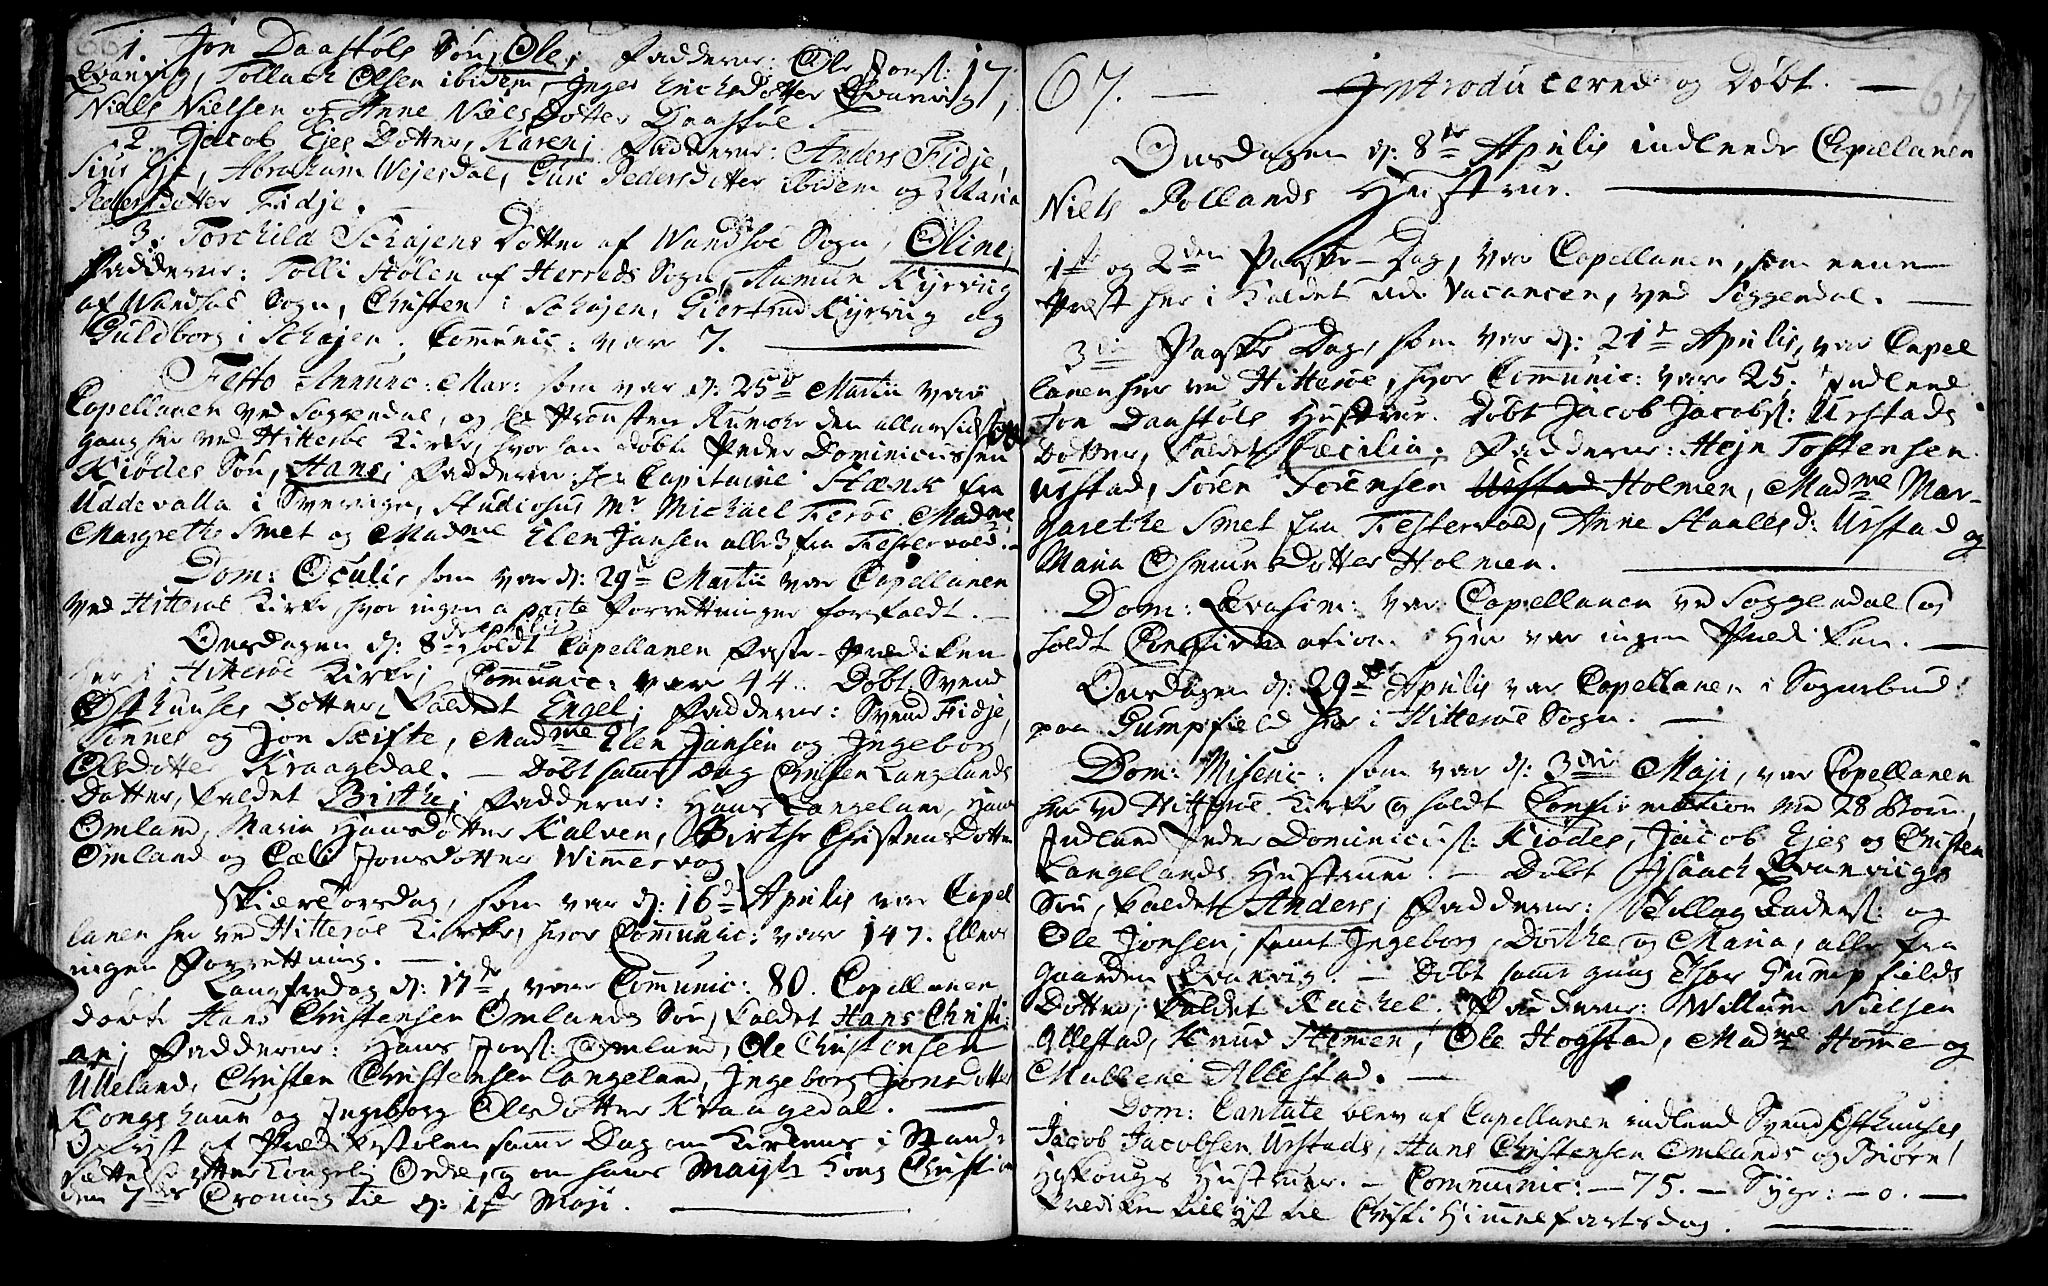 1. Jon Daastøls Søn, Ole; Fadderne: Ole Jonss:
Evanvig, Tollach Olsen ibidem, Inger Erichsdotter Evanvig,
Niels Nielsen og Anne Nielsdotter Daastøl.
2. Jacob Ejes Dotter, Karen; Fadderne: Anders Fidje,
Eje, Abraham Wejesdal, Guri Pedersdotter ibidem og Maria
Pedersdotter Fidje.
3. Torchild Schojens Dotter af Wandsøe Sogn, Oline,
Fadderne: Tolli Stølen af Herreds Sogn, Aamun Kyrvig
af Wandsøe Sogn, Christen Schojen, Giertrud Kyrvig og
Guldborg i Schojen. Comunic: var 7.
Festo Annunc: Mar: som var d: 25de Martii var
Capellanen ved Soggendal, og Hr Provsten Rumohr den allersidste
gang her ved Hitterøe Kirke, hvor han døbte Peder Dominicussen
Kiødes Søn, Hans; Fadderne: Hr Capitaine Stænk fra
Uddevalla i Sverrige, Studiosus Mr Michael Feroe, Madme
Margrethe Smet og Madme Elen Jansen alle 3 fra Festervold.
Dom: Oculi, som var d: 29de Martii var Capellanen
ved Hitterøe Kirke, hvor ingen a parte Forrettninger forefaldt.
Onsdagen d: 8de Aprilis holdt Capellanen Faste-Prædiken
her i Hitterøe Kirke; Comunic: var 44. Døbt Svend
Østhuuses Dotter, kaldet Engel; Fadderne: Svend Fidje,
Tønnes og Jon Skifte, Madme Elen Jansen og Ingeborg
Olsdotter Kraagedal. - Døbt samme Dag Christen Langelands
Dotter, kaldet Birthe; Fadderne: Hans Langeland, Hans
Omland, Maria Hansdotter Kalven, Birthe Christensdotter
Omland og Cæli Jonsdotter Wimervog.
Skiærtorsdag, som var d: 16de Aprilis var Capel
lanen her ved Hitterøe Kirke, hvor Comunic: var 147. Ellers
ingen Forrettning.
Langfredag d: 17de, var Comunic: 80. Capellanen
døbte Hans Christensen Omlands Søn, kaldet Hans Christi
an; Fadderne: Hans Jonss: Omland, Ole Christensen
Ulleland, Christen Christensen Langeland, Ingeborg Jonsdotter
Kongshavn og Ingeborg Olsdotter Kraagedal.
Oplyst af Prædikestolen samme Dag om Kirkens i Stand-
sættelse efter Kongelig Ordre, og om hans Mayst: Kong Christian
den 7des Croning til d: 1ste Maji.
67. - Introducerede og Døbt. - 67
Onsdagen d: 8de Aprilis indleede Capellanen
Niels Pollands Hustrue.
1ste og 2den Paaske-Dag, var Capellanen, som eene
Præst her i Kaldet udi Vacancen, ved Soggendal.
3die Paaske Dag, som var d: 21de Aprilis, var Capel
lanen her ved Hitterøe, hvor Comunic: var 25. Indleed
Jon Daastøls Hustrue. Døbt Jacob Jacobss: Urstads
Dotter, kaldet Cæcilia. Fadderne: Heje Tostensen
Urstad, Søren Sørensen Urstad Holmen, Madme Mar-
garethe Smet fra Festervold, Anne Staalesd: Urstad og
Maria Osmundsdotter Holmen.
Dom: Qvasim: var Capellanen ved Soggendal og
holdt Confirmation. Her var ingen Prædiken.
Onsdagen d: 29de Aprilis var Capellanen i Sognebud
paa Gumpfield her i Hitterøe Sogn.
Dom: Miseric: som var d: 3die Maji, var Capellanen
her ved Hitterøe Kirke og holdt Confirmation med 28 Børn,
Indleed Peder Dominicuss: Kiødes, Jacob Ejes og Christen
Langelands Hustruer. - Døbt Isaach Evanviigs
Søn, kaldet Anders; Fadderne: Tellag Laderss: og
Ole Jonsen; samt Ingeborg, Dorthe og Maria, alle fra
Gaarden Evanvig. - Døbt samme gang Thor Gumpfields
Dotter, kaldet Rachel. Fadderne: Willum Nielsen
Allestad, Knud Stemen, Ole Hogstad, Madme Home og
Mallene Allestad.
Dom: Cantate blev af Capellanen indleed Svend Østhuuses
Jacob Jacobsen Urstads, Hans Christensen Omlands og Biørn
Hyskongs Hustruer. - Communic: - 75. - Syge: - 0. -
Prædiken tillyst til Christi Himmelfartsdag.